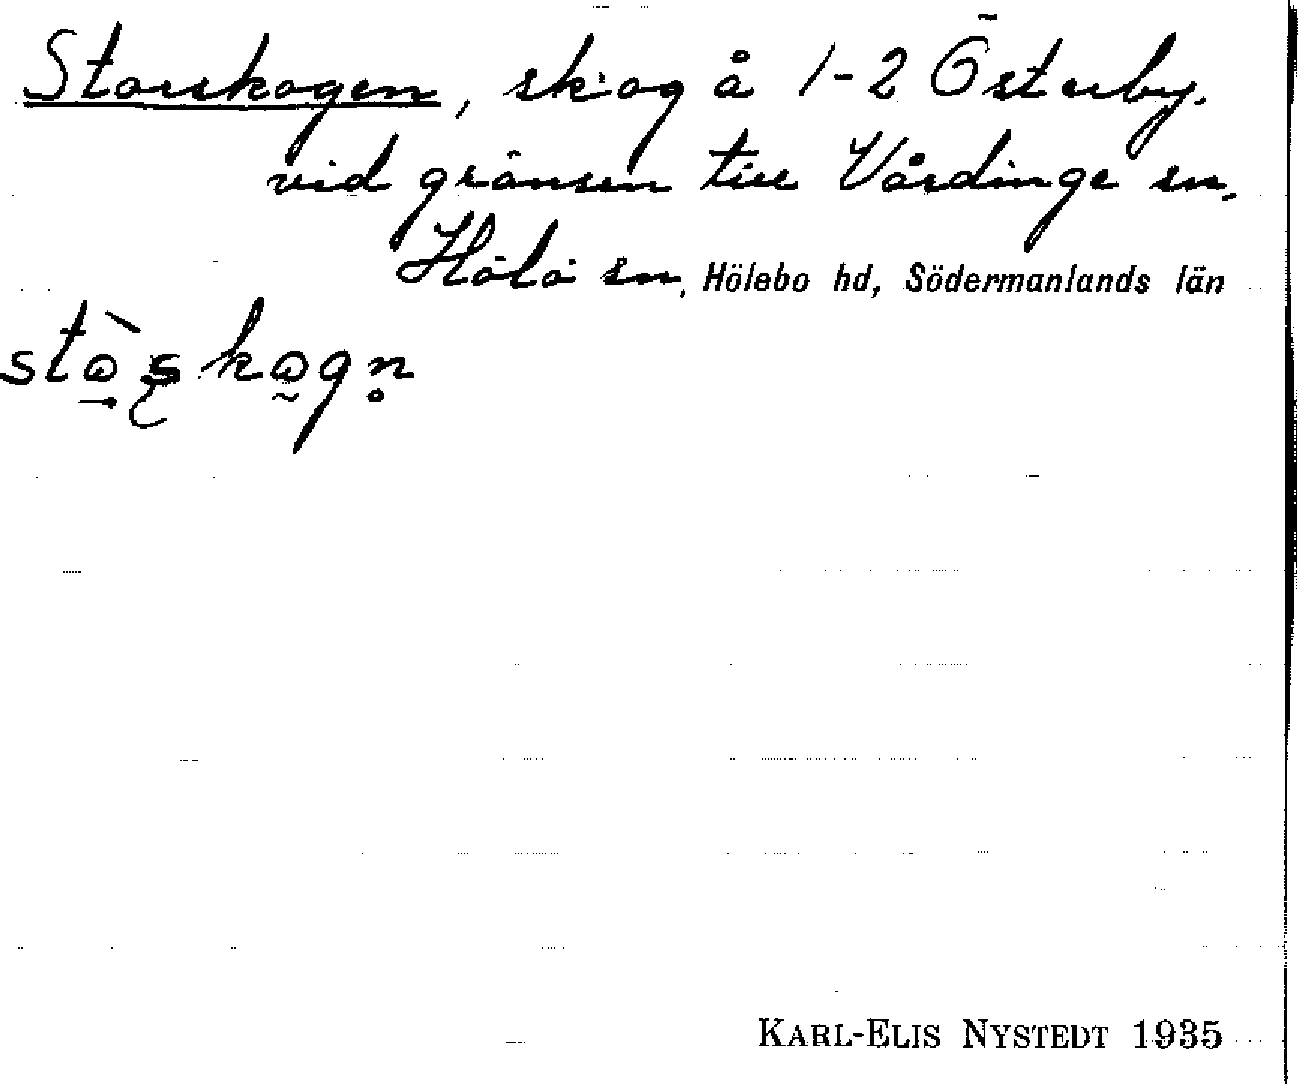 Storskogen, skog å 1-2 Österby.
vid gränsen till Vårdinge sn,
Hölö sn, Hölebo hd, Södermanlands län
KARL-ELIS NYSTEDT 1935